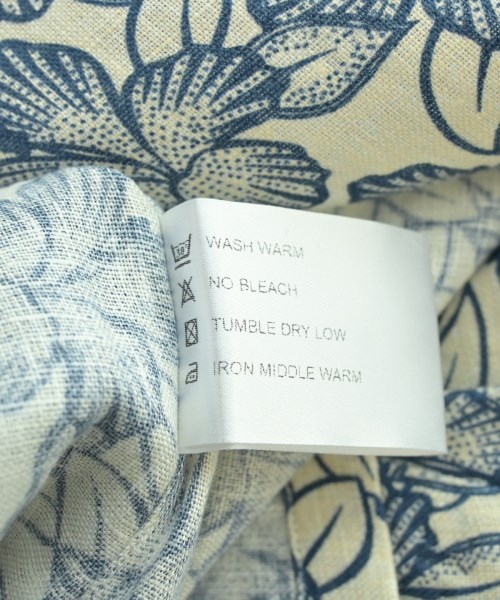 30° WASH WARM
NO BLEACH
TUMBLE DRY LOW
IRON MIDDLE WARM